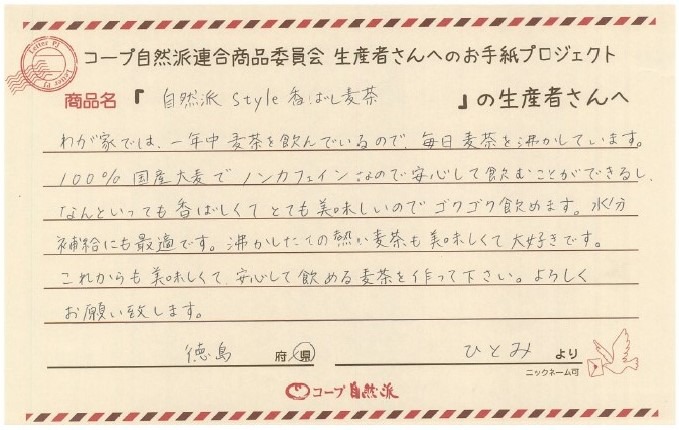 Letter PJ
Letter PJ
コープ自然派連合商品委員会 生産者さんへのお手紙プロジェクト
商品名『 自然派 Style 香ばし麦茶 』の生産者さんへ
わが家では、一年中 麦茶を飲んでいるので、毎日 麦茶を沸かしています。
100% 国産大麦で ノンカフェインなので安心して飲むことができるし、
なんといっても香ばしくて とても美味しいので ゴクゴク飲めます。水分
補給にも最適です。沸かしたての熱い麦茶も美味しくて 大好きです。
これからも美味しくて、安心して飲める麦茶を作って下さい。よろしく
お願い致します。
徳島 府/県 ひとみ より
ニックネーム可
コープ自然派